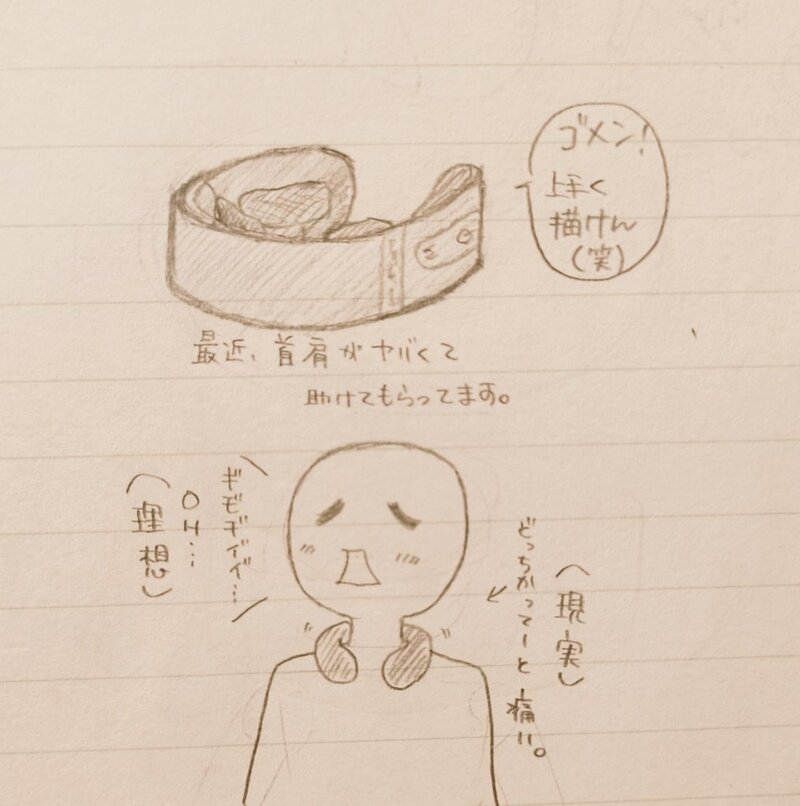 ゴメン!
上手く
描けん
(笑)
最近、首肩がヤバくて
助けてもらってます。
ギモヂイイ…
OH…
(理想)
(現実)
どっちかってーと痛い。